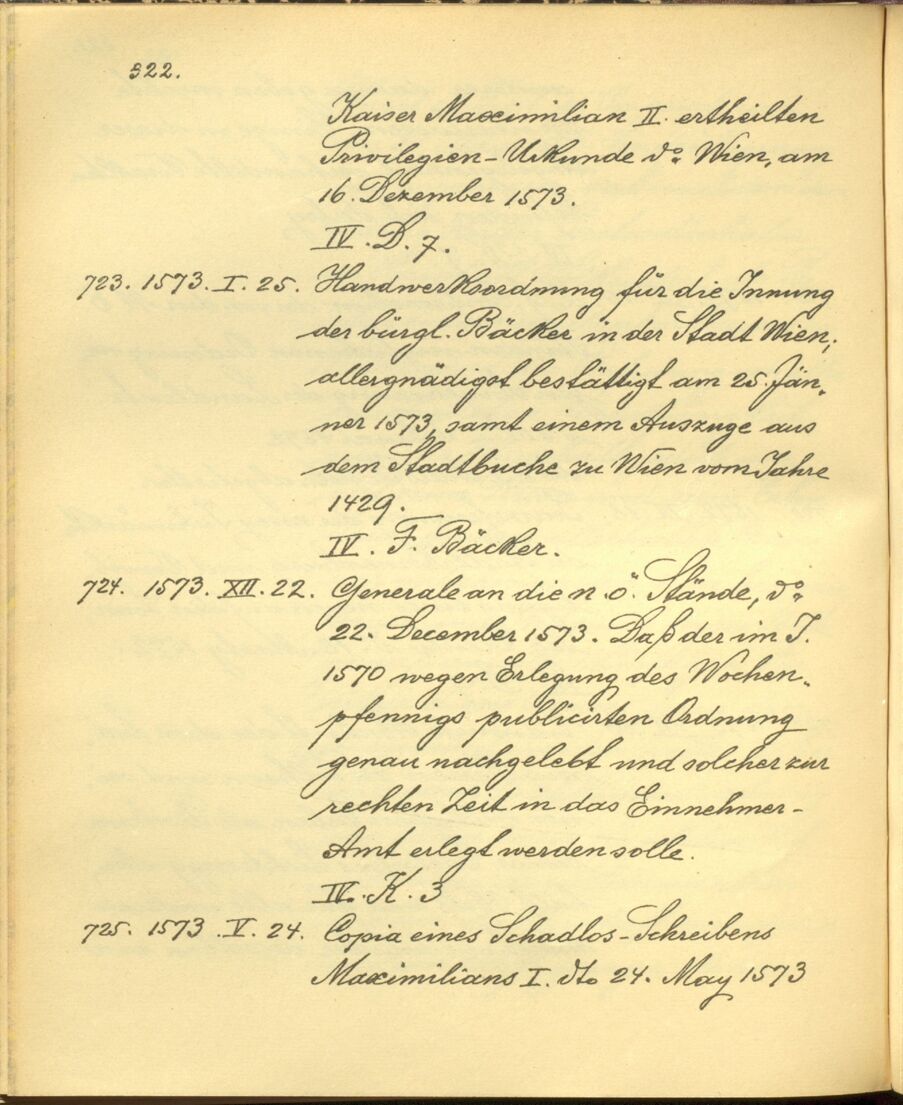 322.
Kaiser Maximilian II. ertheilten
Privilegien-Urkunde do. Wien, am
16. Dezember 1573.
IV. D. 7.
723. 1573. I. 25. Handwerksordnung für die Innung
der bürgl. Bäcker in der Stadt Wien,
allergnädigst bestättigt am 25. Jän„
ner 1573, samt einem Auszuge aus
dem Stadtbuche zu Wien vom Jahre
1429.
IV. F. Bäcker.
724. 1573. XII. 22. Generale an die n. ö. Stände, do.
22. December 1573. Daß der im J.
1570 wegen Erlegung des Wochen„
pfennigs publicirten Ordnung
genau nachgelebt und solcher zur
rechten Zeit in das Einnehmer-
Amt erlegt werden solle.
IV. K. 3
725. 1573. V. 24. Copia eines Schadlos-Schreibens
Maximilians I. dto 24. May 1573